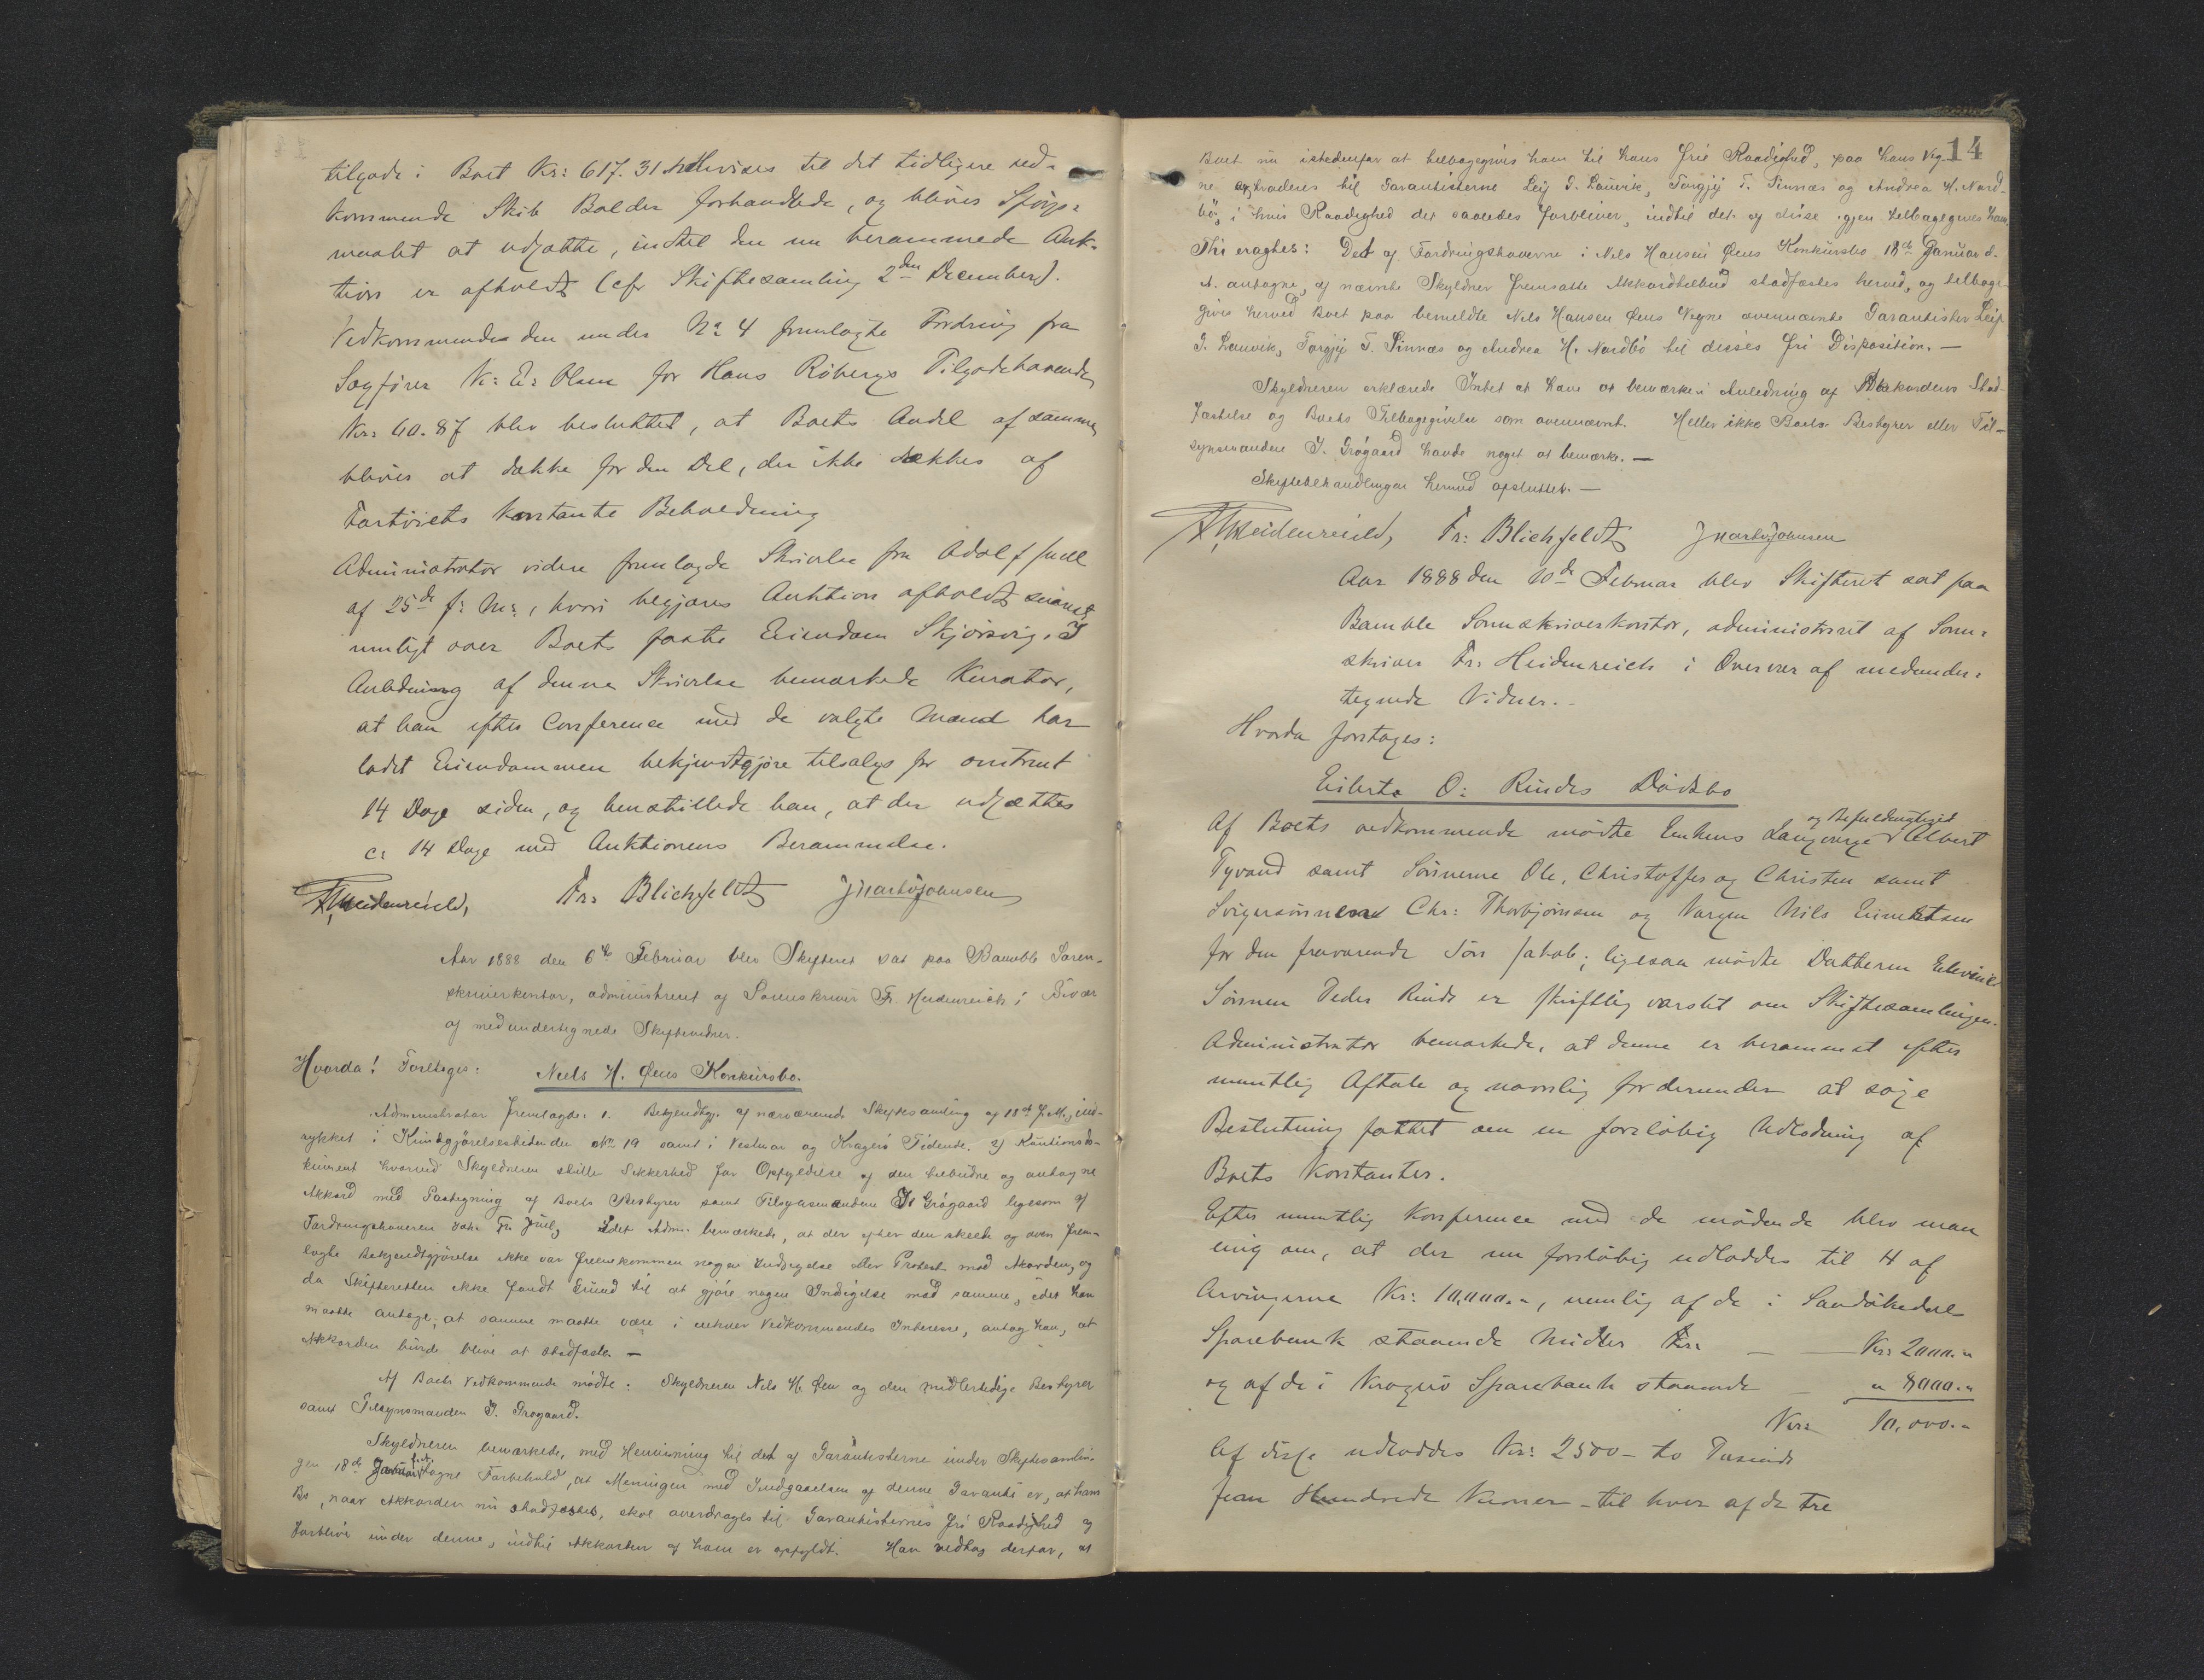 tilgode i Boet Kr: 617.31 henvises til det tidligere ved-
kommende Skib Balder forhandlede, og blives Spörgs-
maalet at udsætte, indtil den nu berammede Auk-
tion er afholdt (cfr Skiftesamling 2den December).
Vedkommende den under No 4 fremlagte Fordring fra
Sagförer K: E: Olsen for Hans Röbergs Tilgodehavende
Kr: 40.87 blev besluttet, at Boets Andel af samme
blives at dække for den Del, der ikke dækkes af
Fartöiets Kontante Beholdning
Administrator videre fremlagde Skrivelse fra Adolf Juell
af 25de f: M:, hvori begjæres Auktion afholdt snarest
muligt over Boets faste Eiendom Skjörsvig. I
Anledning af denne Skrivelse bemærkede Kurator,
at han efter Conference med de valgte Mænd har
ladet Eiendommen bekjendtgjöre tilsalgs for omtrent
14 Dage siden, og henstillede han, at der udsættes
c: 14 Dage med Auktionens Berammelse.
Fr. Heidenreich, Fr: Blichfeldt J Martojohnsen
Aar 1888 den 6te Februar blev Skifteret sat paa Bamble Soren-
skriverkontor, administreret af Sorenskriver Fr. Heidenreich i Overvær
af medundertegnede Skiftevidner.
Hvorda! Foretages: Niels H. Øens Konkursbo.
Administrator fremlagde: 1. Bekjendtgj. af nærværende Skiftesamling af 18de f. M., ind-
rykket i Kundgjörelsestidende No 19 samt i Vestmar og Kragerö Tidende. 2) Kautionsdo-
kument hvorved Skyldneren stiller Sikkerhed for Opfyldelse af den tilbudne og antagne
Akkord med Paategning af Boets Bestyrer samt Tilsynsmanden J. Grögaard ligesom af
Fordringshaveren Joh. Fr. Juel, Idet Adm. bemærkede, at der efter den skeete og oven frem-
lagte Bekjendtgjörelse ikke var fremkommen nogen Indsigelse eller Protest mod Akorden, og
da Skifteretten ikke fandt Grund til at gjöre nogen Indsigelse mod samme, idet han
maatte antage, at samme maatte være i enhver Vedkommendes Interesse, antog han, at
Akkorden burde blive at stadfæste. —
Af Boets Vedkommende mödte: Skyldneren Nils H. Øen og den midlertidige Bestyrer
samt Tilsynsmanden J. Grogaard.
Skyldneren bemærkede, med Henvisning til det af Garantisterne under Skiftesamlin-
gen 18de Januar tagne Forbehold, at Meningen med Indgaaelsen af denne Garanti er, at hans
Bo, naar Akkorden nu stadfæstes, skal overdrages til Garantisternes fri Raadighed og
forblive under denne, indtil Akkorden af ham er opfyldt. Han vedtog derfor, at
14
Boet nu istedenfor at tilbagegives ham til hans frie Raadighed, paa hans Veg-
ne extraderes til Garantisterne Leif G. Lauvik, Torgje T. Finnæs og Andrea H. Nord-
bö, i hvis Raadighed det saaledes forbliver, indtil det af disse igjen tilbagegives ham.
Thi eragtes: Det af Fordringshaverne i Nils Hansen Øens Konkursbo 18de Januar d.
A. antagne, af nævnte Skyldner fremsatte Akkordtilbud stadfæstes herved, og tilbage-
gives herved Boet paa bemeldte Nils Hansen Øens Vegne ovennævnte Garantister Leif
G. Lauvik, Torgje T. Finnæs og Andrea H. Nordbö til disses fri Disposition. —
Skyldneren erklærede Intet at have at bemærke i Anledning af Akkordens Stad-
fæstelse og Boets Tilbagegivelse som ovennævnt. Heller ikke Boets Bestyrer eller Til-
synsmanden J. Grögaard havde noget at bemærke. —
Skiftebehandlingen hermed afsluttet. —
Fr. Heidenreich, Fr: Blichfeldt J Martojohnsen
Aar 1888 den 10de Februar blev Skifteret sat paa
Bamble Sorenskriverkontor, administreret af Soren-
skriver Fr: Heidenreich i Overvær af medunder-
tegnede Vidner. -
Hvorda foretages:
Eilerta O: Rindes Dödsbo
Af Boets vedkommende mödte Enkens Laugverge og Befuldmægtiged Albert
Tyvand samt Sönnerne Ole, Christoffer og Christen samt
Svigersönnen Chr: Thorbjörnsen og Vergen Nils
for den fraværende Sön Jakob; ligesaa mödte Datteren
Sönnen Peder Rinde er skriftlig varslet om Skiftesamlingen.
Administrator bemærkede, at denne er berammet efter
mundtlig Aftale og navnlig for derunder at söge
Beslutning fattet om en foreløbig Udlodning af
Boets Kontanter.
Efter mundtlig Konference med de mödende blev man
enig om, at der nu foreløbig udloddes til 4 af
Arvingerne Kr: 10,000.-, nemlig af de i Sandökedal
Sparebank staaende Midler Kr: — — Kr: 2000.-
og af de i Kragerö Sparebank staaende — " 8000.-
Kr: 10,000.-
Af disse udloddes Kr: 2500 - to Tusinde
fem Hundrede Kroner - til hver af de tre